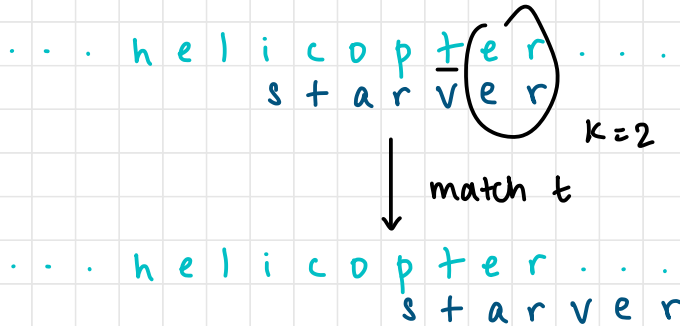 . . . helicopter . . .
starver
K = 2
match t
. . . helicopter . . .
starver